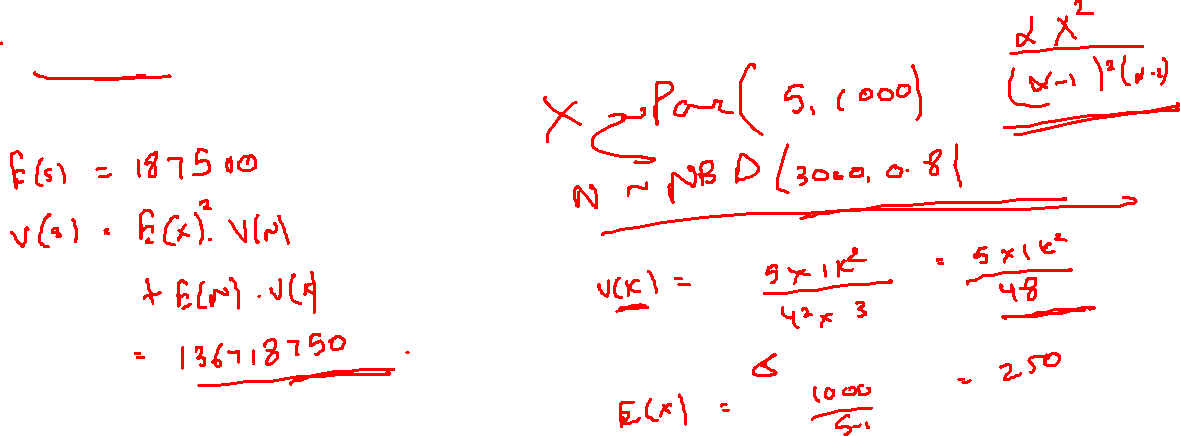 E(s) = 187500
V(s) = E(x)². V(N)
+ E(N) . V(x)
= 136718750
α λ²
(α-1)²(α-2)
X ~ Par( 5, 1000)
N ~ NBD (3000, 0.8)
V(x) = 5×1k² / 4²× 3 = 5×1k² / 48
E(x) = 1000 / 5-1 = 250